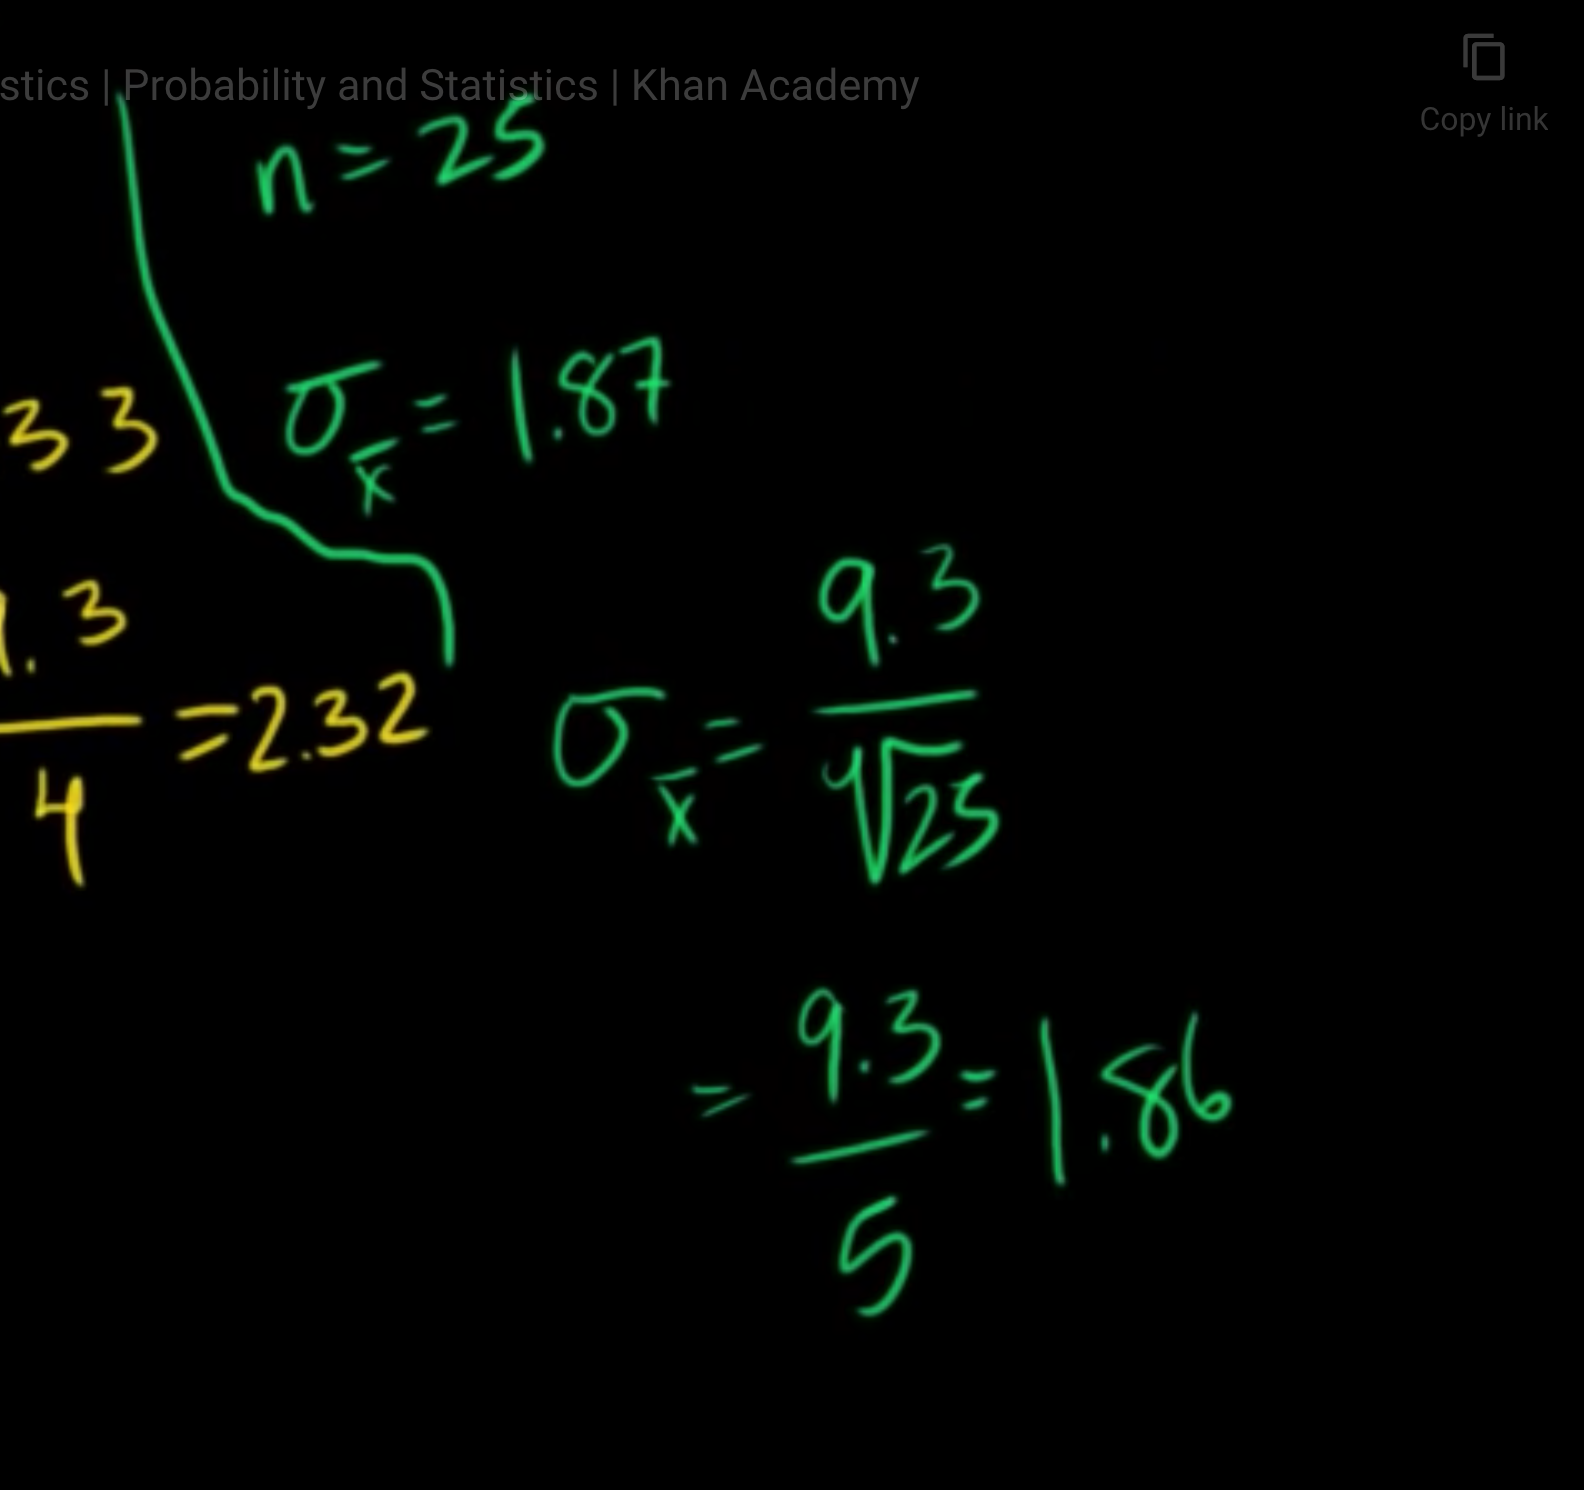 stics | Probability and Statistics | Khan Academy
Copy link
n = 25
33
σx̄ = 1.87
.3
4
=2.32
σx̄ = 9.3
√25
= 9.3
5
= 1.86